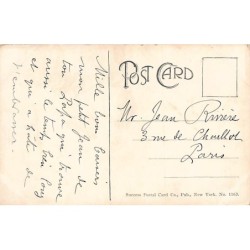 POST CARD
Mille bons baisers
mon petit Jean de
ton Papa qui trouve
aussi le temps bien long
et qui a hâte de
t'embrasser.
Mr Jean Rivière
3 rue de Chaillot
Paris
Souvenir Postal Card Co., Pub., New York. No.